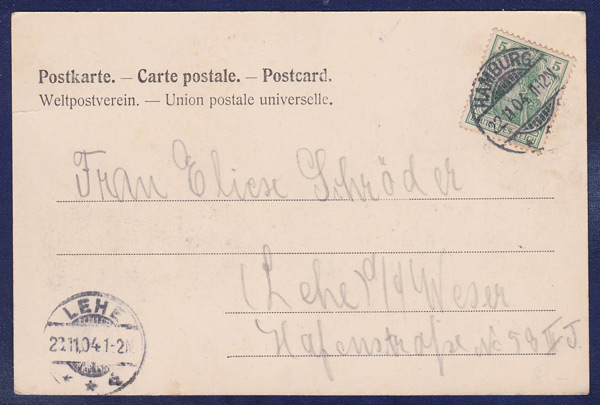 Postkarte. — Carte postale. — Postcard.
Weltpostverein. — Union postale universelle.
5 5
HAMBURG
11.04.1-2N
Frau Eliese Schröder
(Lehe) a/d Weser
Hafenstraße No 58 II J.
LEHE
22.11.04.1-2N